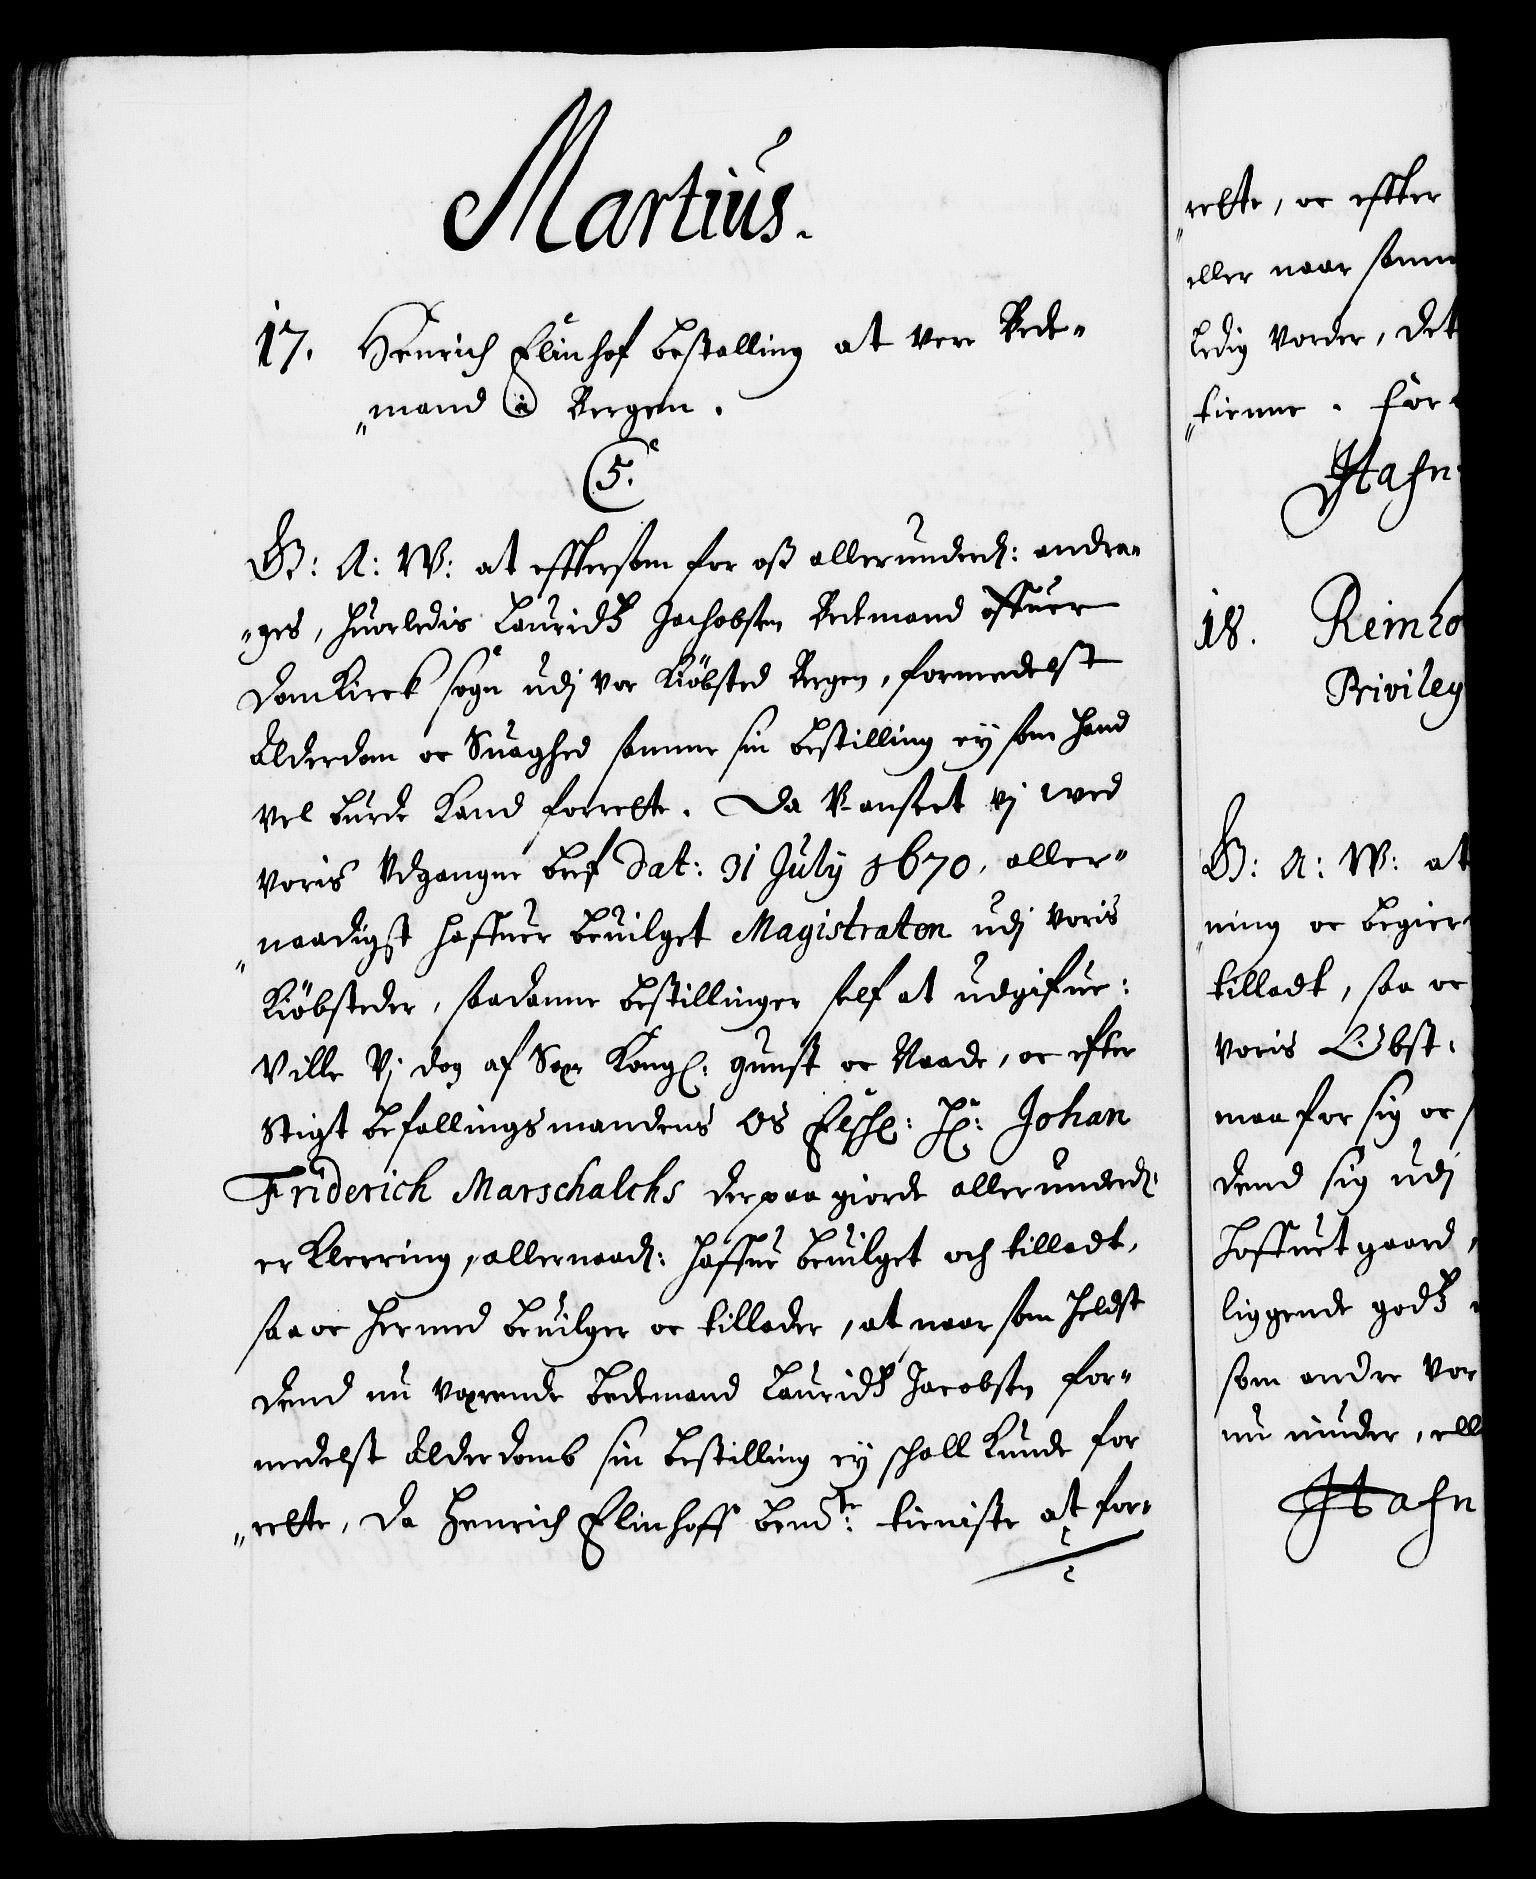 Martius.
17. Henrich Elinhof bestalling at vere Bede-
„mand i Bergen.
C5.
G: A: W: at efftersom for oß allerunderd: andra-
„ges, huorledis Lauridtz Jachobsen Bedemand offuer
DomKirck sogn udj vor Kiöbsted Bergen, formedelst
Alderdom oc Suaghed samme sin bestilling ey som hand
vel burde Kand forrette. Da V-anseet vj med
voris Udgangne bref Dat: 31 July 1670, aller-
„naadigst haffuer beuilget Magistraten udj voris
Kiöbsteder, saadanne bestillinger self at udgifue:
Ville Vj dog af Kongl: gunst oc Naade, oc efter
Stigt befallingsmandens Os Elschel: Hr: Johan
Friderich Marschalchs derpaa giorde allerunderd:
erKleering, allernaad: haffue beuilget och tilladt,
saa oc hermed beuilger oc tillader, at naar som helst
dend nu verende bedemand Lauridtz Jacobsen for-
medelst Alderdomb sin bestilling ey schall Kunde for
„rette, da Henrich Elinhoff bemte: tieniste at for-
rette, oc effter
eller naar samm
ledig vorder, det
„tienne. For-
Hafn
18. Reinho
Privileg
G: A: W: at
„ning oc begier
tilladt, saa oc
voris Obst.
maa for sig oc
dend sig udj
hoffuetgaard,
liggende godtz
som andre vor
nu minder, ell
Hafn